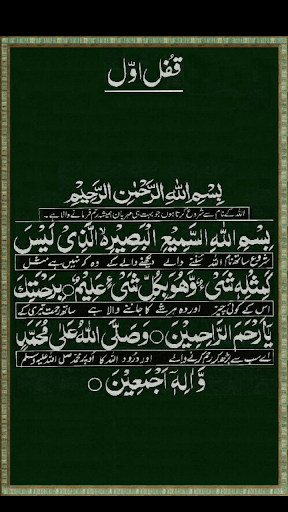 قفل اوّل
بِسْمِ اللهِ الرَّحْمٰنِ الرَّحِيْمِ
اللہ کے نام سے شروع کرتا ہوں جو بہت ہی مہربان ہمیشہ رحم فرمانے والا ہے۔
بِسْمِ اللهِ السَّمِيْعِ الْبَصِيْرِ الَّذِىْ لَيْسَ
شروع ساتھ نام اللہ سننے والے دیکھنے والے کے وہ کہ نہیں ہے مثل
كَمِثْلِهٖ شَىْءٌ وَّهُوَ بِكُلِّ شَىْءٍ عَلِيْمٌ ○ بِرَحْمَتِكَ
اس کے کوئی چیز اور وہ ہر شے کا جاننے والا ہے ساتھ رحمت تیری کے
يَا اَرْحَمَ الرَّاحِمِيْنَ ○ وَصَلَّى اللهُ عَلٰى مُحَمَّدٍ
اے سب سے بڑھ کر رحم کرنے والے اور درود اللہ کا اوپر محمد صلی اللہ علیہ وسلم
وَّاٰلِهٖ اَجْمَعِيْنَ ○